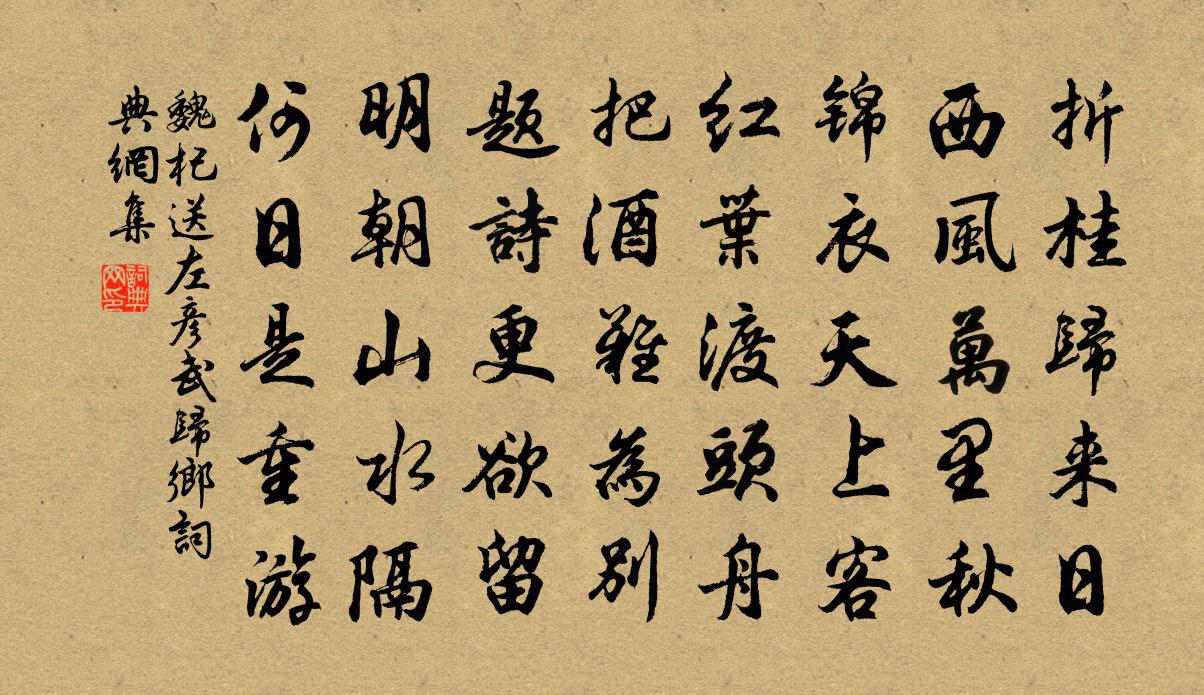 折桂歸来日
西風萬里秋
锦衣天上客
红葉渡頭舟
把酒難為别
题詩更欲留
明朝山水隔
何日是重游
魏杞送左彦武歸鄉詞
典網集
詞典
网印